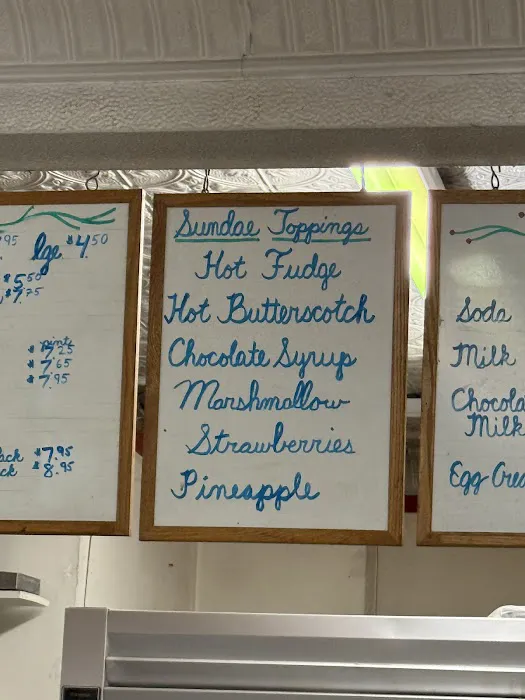 lge $4.50
$5.50
$7.75
pints
$7.25
$7.65
$7.95
$7.95
$8.95
Sundae Toppings
Hot Fudge
Hot Butterscotch
Chocolate Syrup
Marshmallow
Strawberries
Pineapple
Soda
Milk
Chocola
Milk
Egg Crea